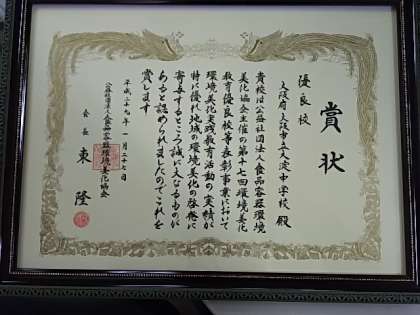 賞状
優良校
大阪府 大阪市立大淀中学校 殿
貴校は公益社団法人食品容器環境
美化協会主催の第十七回環境美化
教育優良校等表彰事業において
環境美化実践教育活動の実績が
特に優れ地域の環境美化の啓発に
寄与するところ誠に大なるものが
あると認められましたのでこれを
賞します
平成二十九年一月二十七日
公益社団法人食品容器環境美化協会
会長 東 隆